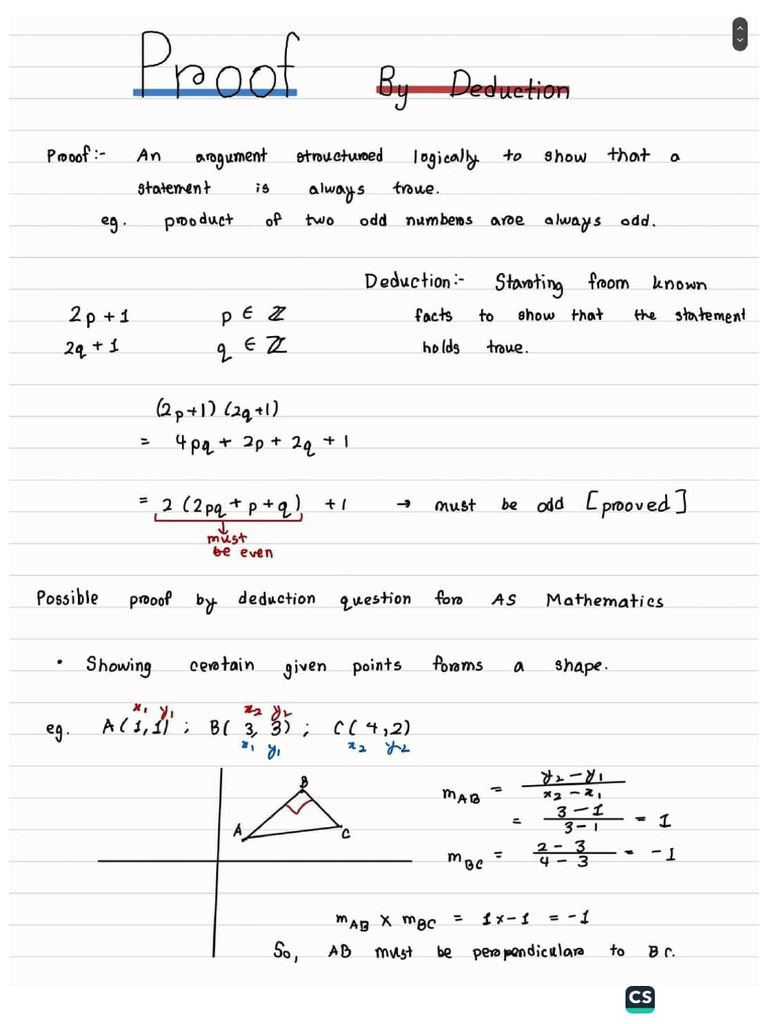 Proof By Deduction
Proof:- An argument structured logically to show that a
statement is always true.
eg. product of two odd numbers are always odd.
Deduction:- Starting from known
2p+1 p ∈ ℤ facts to show that the statement
2q+1 q ∈ ℤ holds true.
(2p+1) (2q+1)
= 4pq + 2p + 2q + 1
= 2 (2pq + p + q) + 1 → must be odd [prooved]
must
be even
Possible proof by deduction question for AS Mathematics
• Showing certain given points forms a shape.
x₁ y₁ x₂ y₂
eg. A(1,1) ; B(3, 3) ; C(4,2)
x₁ y₁ x₂ y₂
B
A
C
m_AB = (y₂ - y₁)/(x₂ - x₁)
= (3 - 1)/(3 - 1) = 1
m_BC = (2 - 3)/(4 - 3) = -1
m_AB × m_BC = 1×-1 = -1
So, AB must be perpendicular to BC.
CS